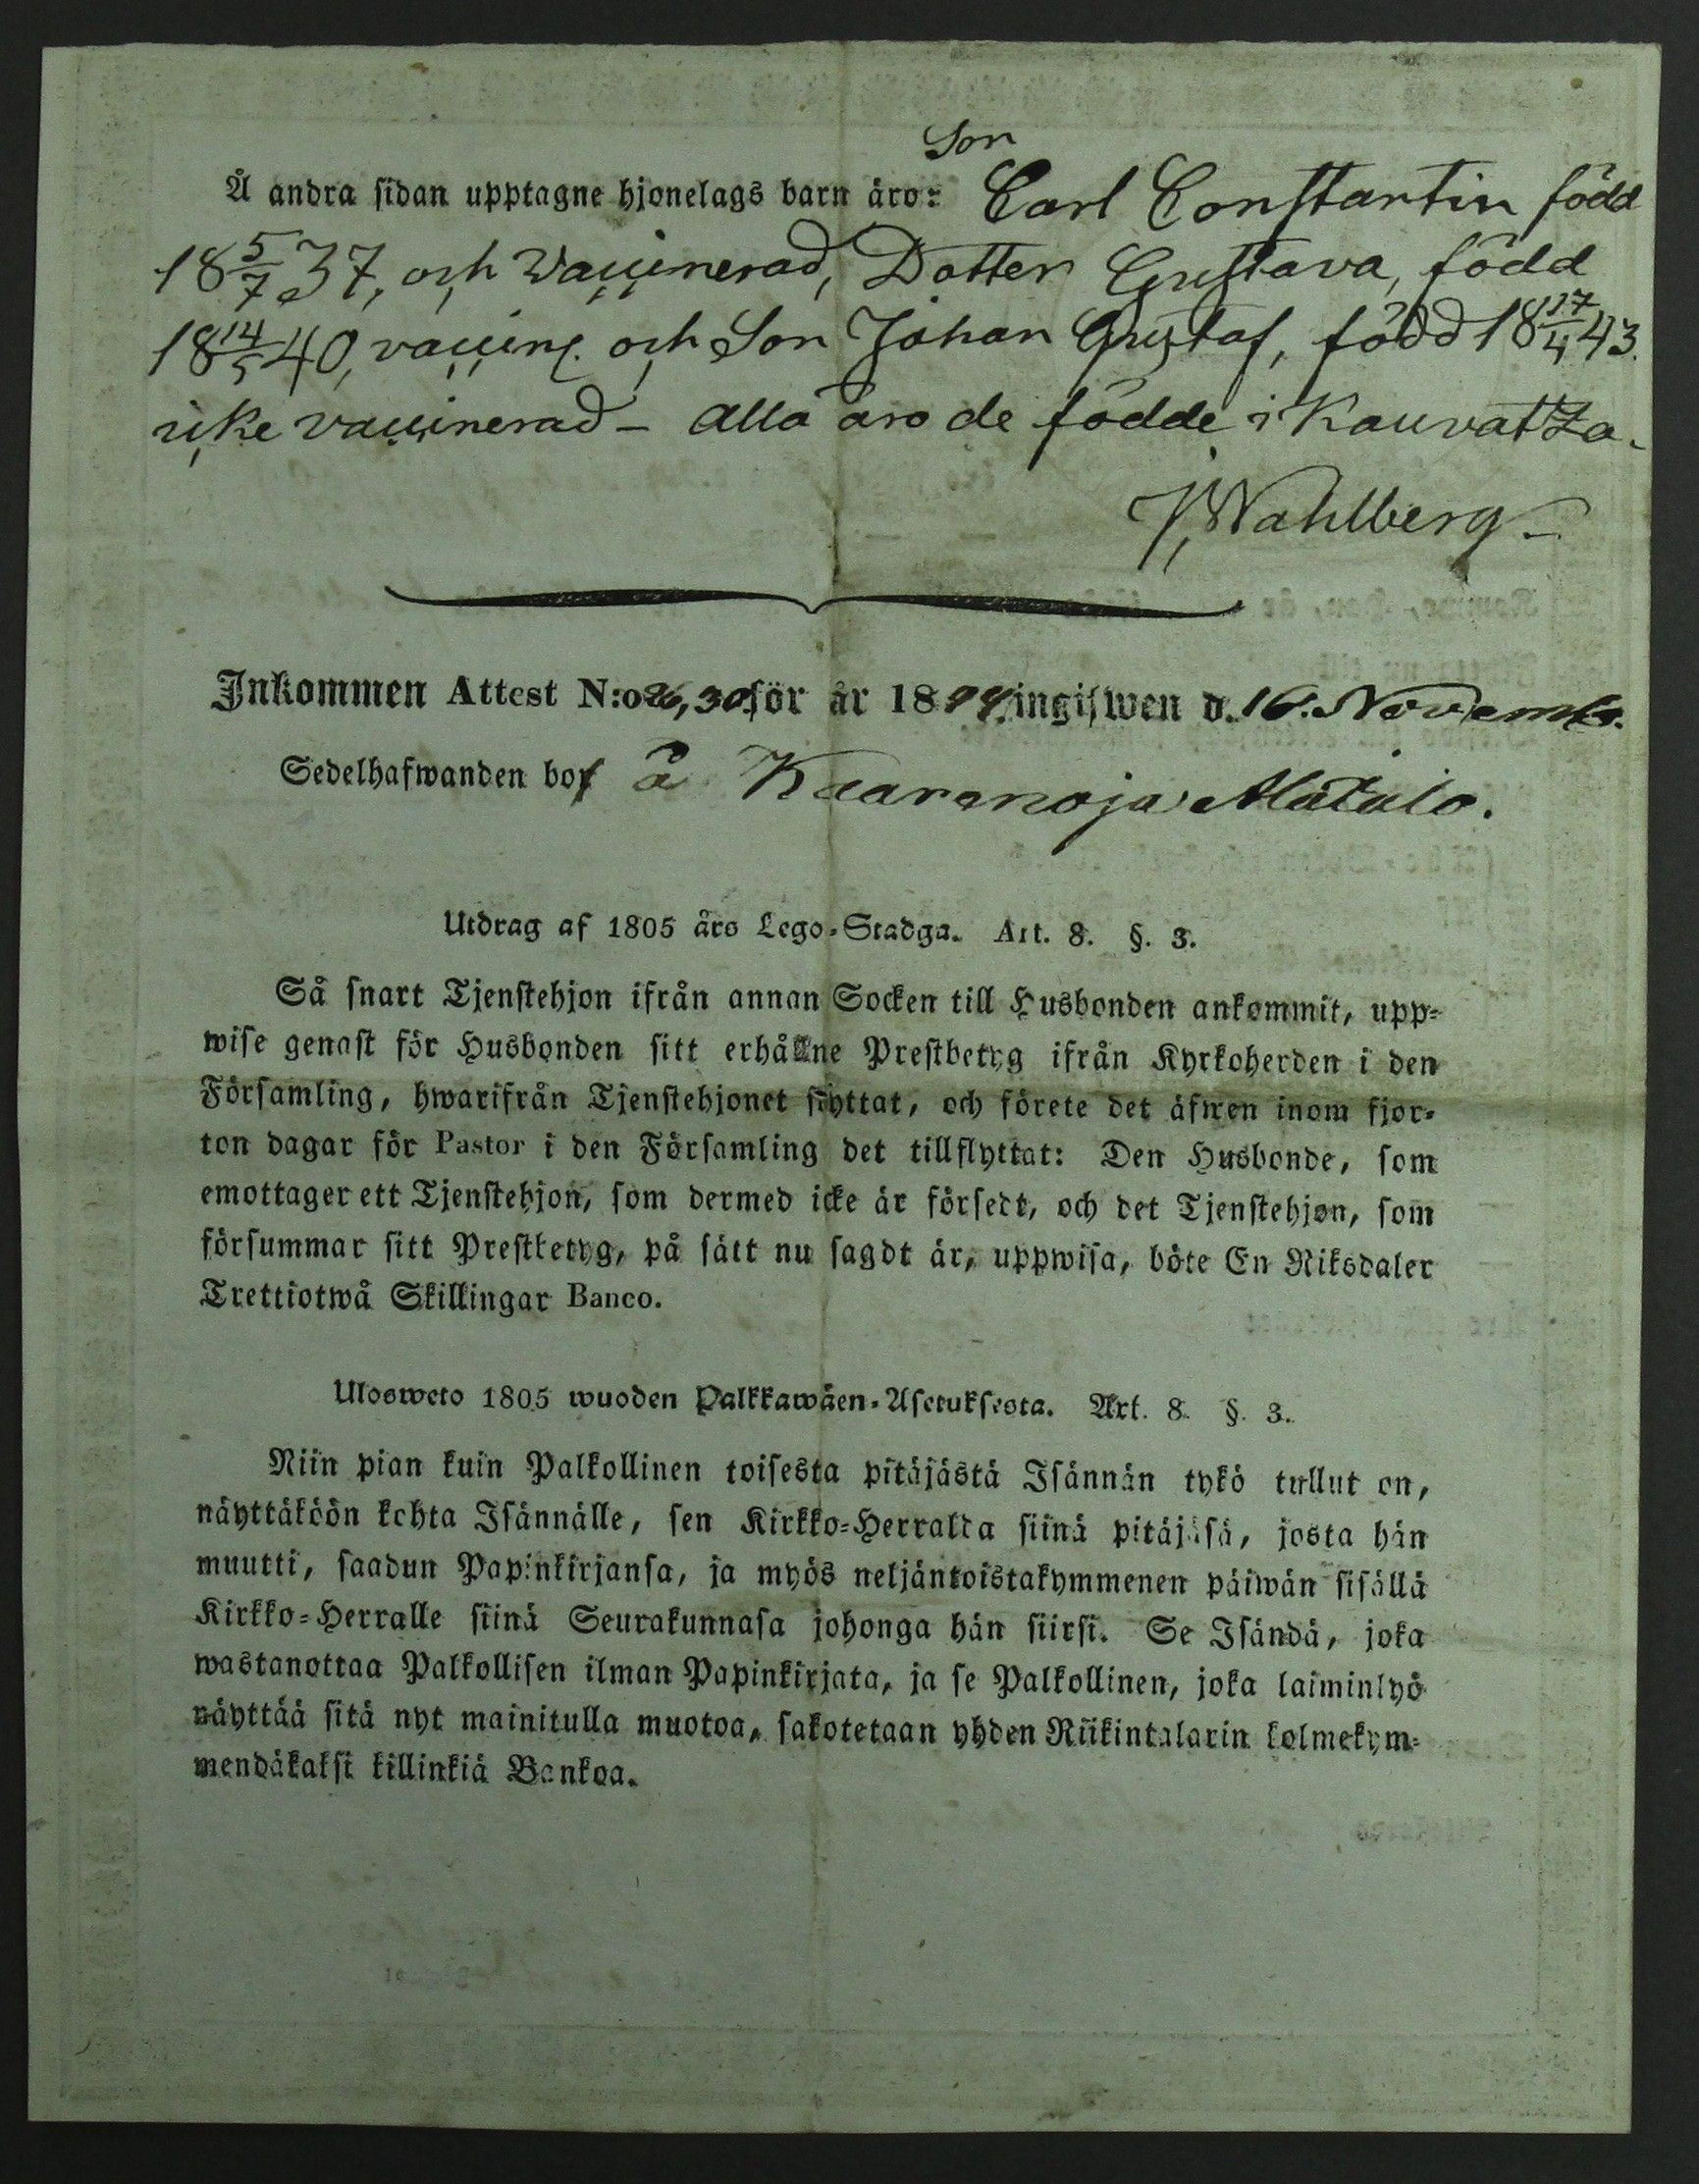 Son
Å andra sidan upptagne hjonelags barn äro: Carl Constantin född
18 5/7 37, och Vaccinerad, Dotter Gustava, född
18 14/5 40, vaccing. och Son Johan Gustaf, född 18 17/4 43.
icke vaccinerad – alla äro de födde i Kauvatza.
J. Wahlberg –
Inkommen Attest N:o 26, 30. för år 1844. ingifwen d. 16. Novemb.
Sedelhafwanden bor å Kaaranoja Alatalo.
Utdrag af 1805 års Lego-Stadga. Art. 8. §. 3.
Så snart Tjenstehjon ifrån annan Socken till Husbonden ankommit, upp-
wise genast för Husbonden sitt erhållne Prestbetyg ifrån Kyrkoherden i den
Församling, hwarifrån Tjenstehjonet flyttat, och förete det äfwen inom fjor-
ton dagar för Pastor i den Församling det tillflyttat: Den Husbonde, som
emottager ett Tjenstehjon, som dermed icke är försedt, och det Tjenstehjon, som
försummar sitt Prestbetyg, på sätt nu sagdt är, uppwisa, böte En Riksdaler
Trettiotwå Skillingar Banco.
Ulosweto 1805 wuoden Palkkawäen-Asetuksesta. Art. 8. §. 3.
Niin pian kuin Palkollinen toisesta pitäjästä Isännän tykö tullut on,
näyttäköön kohta Isännälle, sen Kirkko-Herralda siinä pitäjäsä, josta hän
muutti, saadun Papinkirjansa, ja myös neljäntoistakymmenen päiwän sisällä
Kirkko-Herralle siinä Seurakunnasa johonga hän siirsi. Se Isändä, joka
wastanottaa Palkollisen ilman Papinkirjata, ja se Palkollinen, joka laiminlyö
näyttää sitä nyt mainitulla muotoa, sakotetaan yhden Riikintalarin kolmekym-
mendäkaksi killinkiä Bankoa.